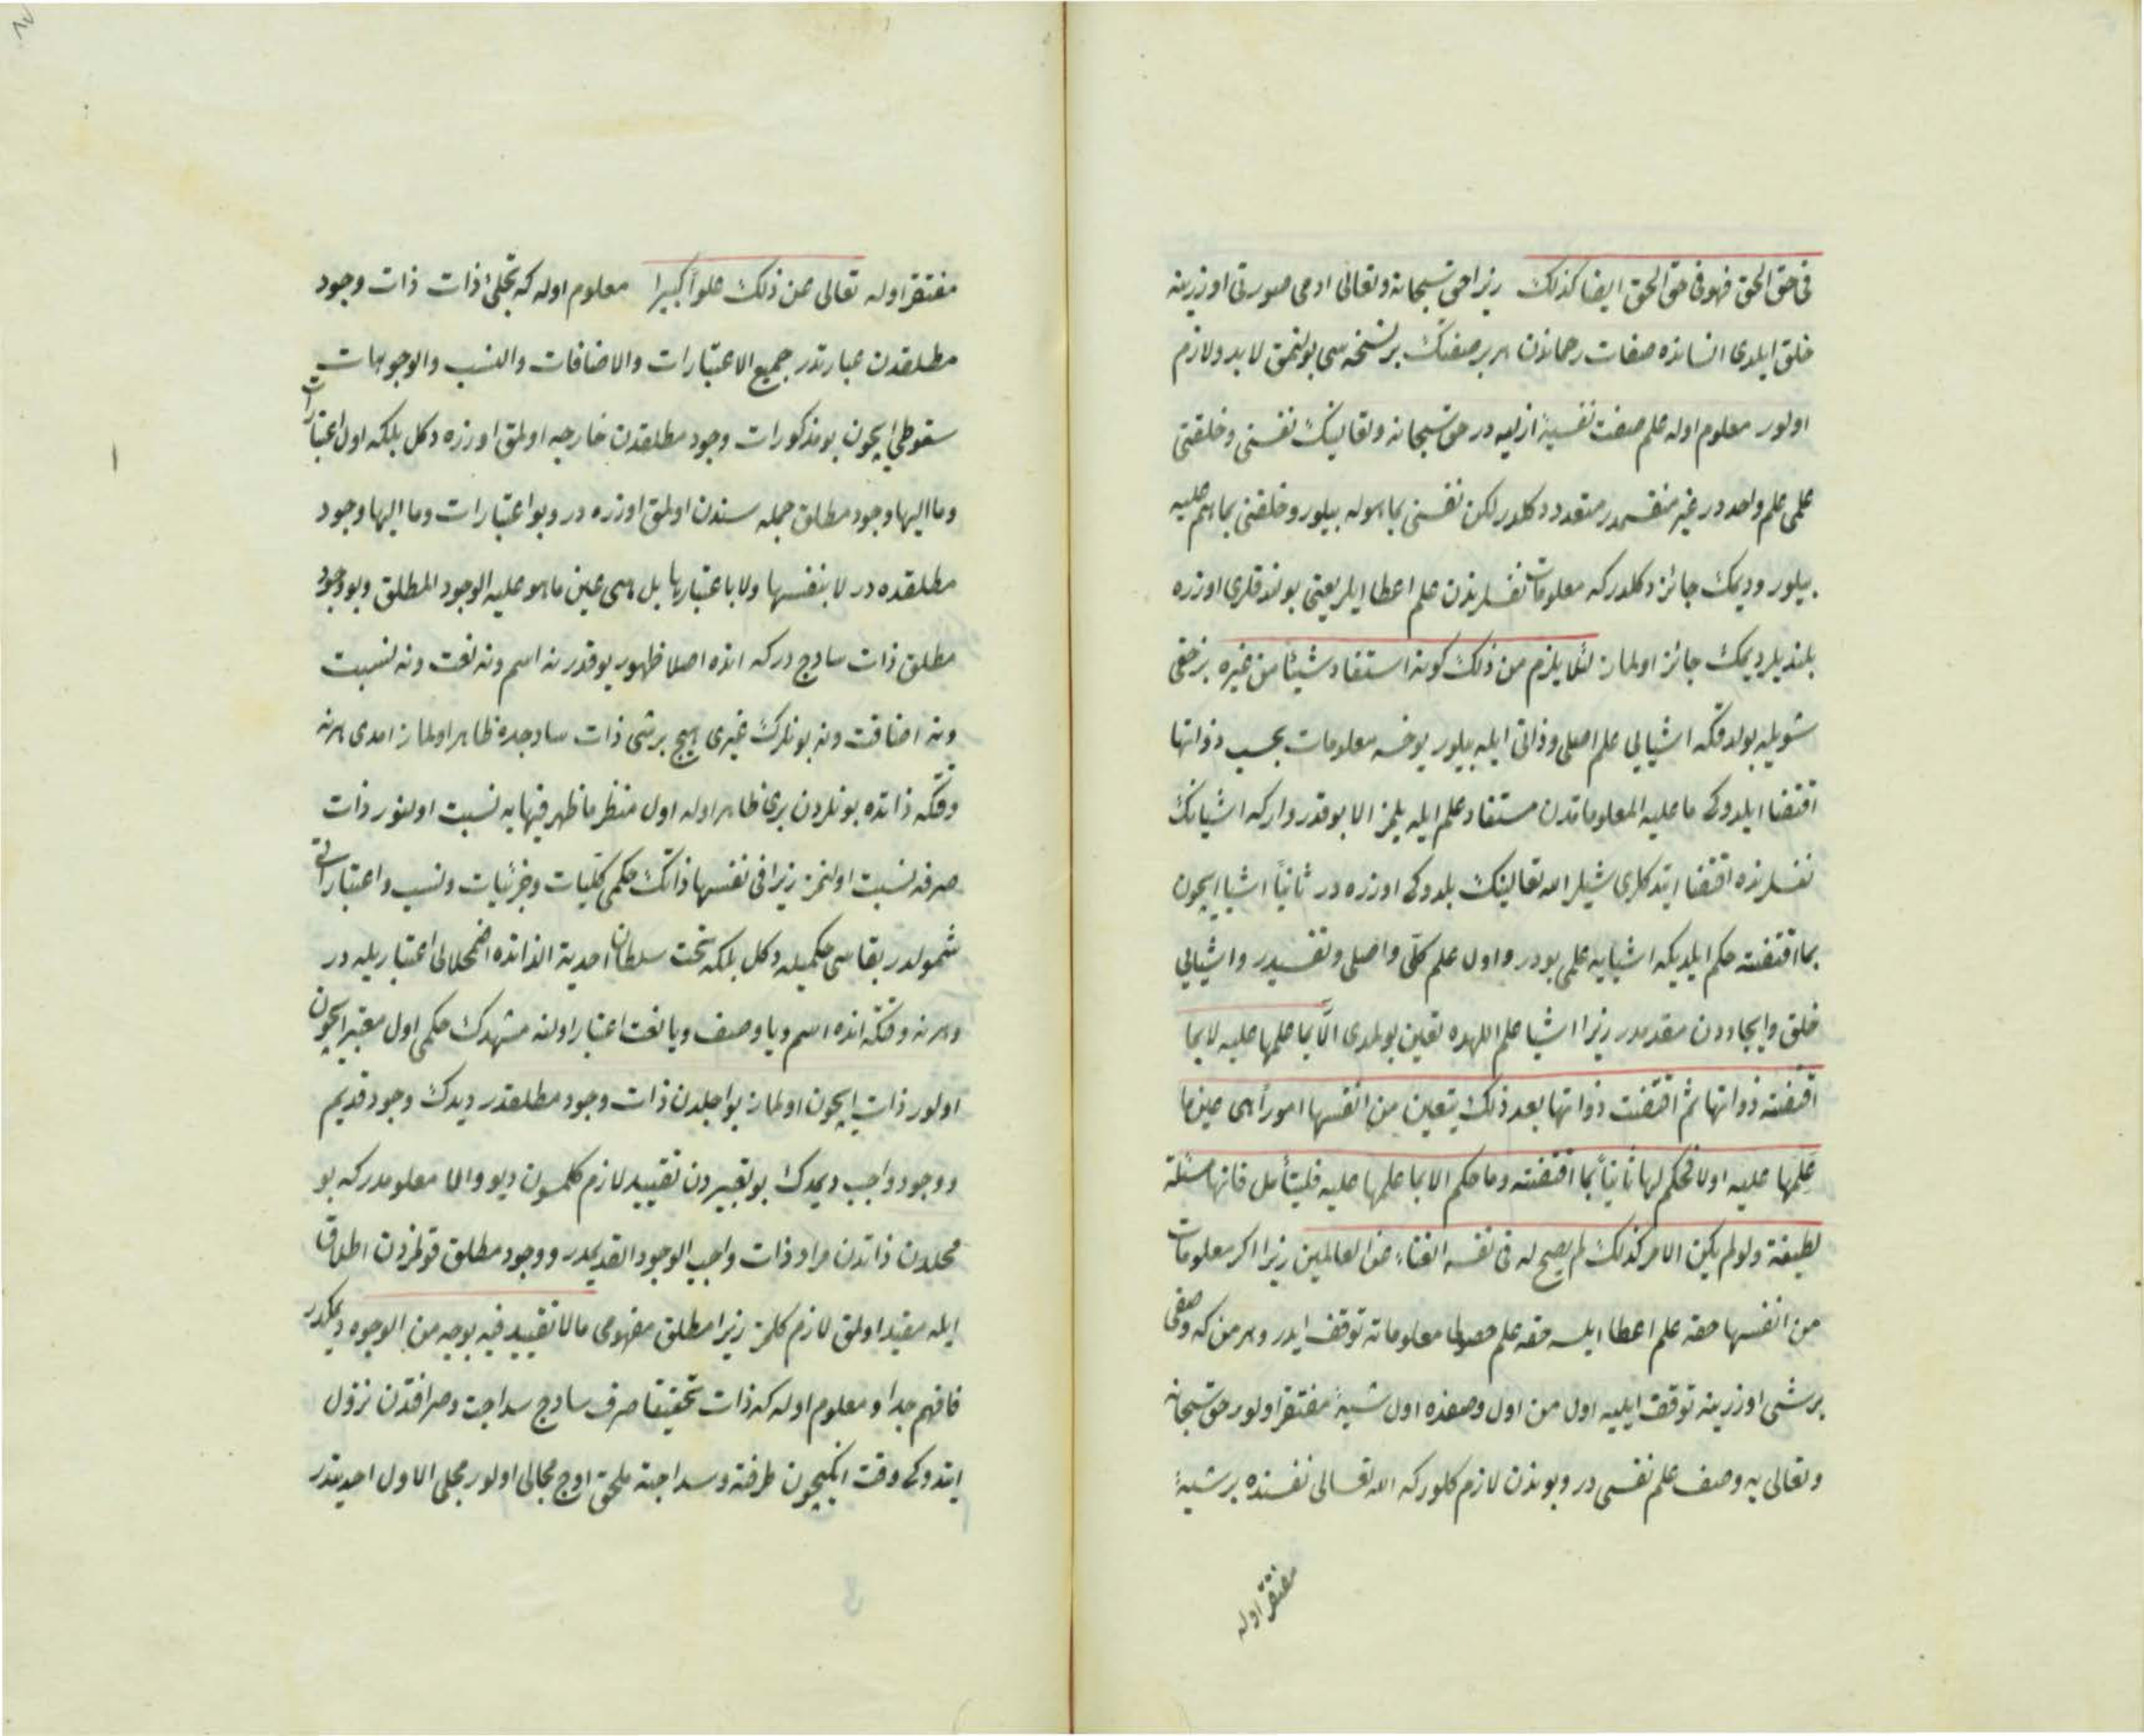 فی حق الحق فهو فی حق الحق ایضا کذلک زیرا حق سبحانه وتعالی ادمی صورتی اوزرینه
خلق ایلدی انسانده صفات رحماندن هر بر صفتک بر نسخه سی بولنمق لابد ولازم
اولور معلوم اوله علم صفت نفسیهٔ ازلیه در حق سبحانه وتعالینک نفسنی وخلقنی
علمی علم واحددر غیر منقسمدر متعدد دکلدر لکن نفسنی بما هو له بیلور وخلقنی بما هم علیه
بیلور ودیمک جائز دکلدر که معلومات نفسلرندن علم اعطا ایلر یعنی بوندقلری اوزره
بلندیلر دیمک جائز اولماز لئلا یلزم من ذلک کونه استفاد شیئا من غیره بر خفی
شویله بولدقکه اشیایی علم اصلی وذاتی ایله بیلور یوخسه معلومات بحسب ذواتها
اقتضا ایلدوکی ما علیه المعلوماتدن مستفاد علم ایله بلمز الا بو قدر وار که اشیانک
نفسلرنده اقتضا ایتدکلری شیلر الله تعالینک بلدوکی اوزره در ثانیاً اشیا ایچون
بما اقتضته حکم ایلدیکه اشیایه علمی بودر واول علم کلّی واصلی ونفسیدر واشیایی
خلق وایجاددن مقدمدر زیرا اشیا علم اللهده تعین بولمدی الّا بما علمها علیه لا بما
اقتضته ذواتها ثم اقتضت ذواتها بعد ذلک یتعین من انفسها اموراً هی عین ما
علمها علیه اولا فحکم لها ثانیاً بما اقتضته وما حکم الا بما علمها علیه فلیتأمل فانها مسئلة
لطیفة ولو لم یکن الامر کذلک لم یصح له فی نفسه الغناء عن العالمین زیرا اکر معلومات
من انفسها حقه علم اعطا ایلسه حقه علم حصولی معلوماته توقف ایدر وهر من که وصفی
بر شی اوزرینه توقف ایلیه اول من اول وصفده اول شیئهٔ مفتقر اولور حق سبحانه
وتعالی یه وصف علم نفسی در وبوندن لازم کلور که الله تعالی نفسنده بر شیئهٔ
مفتقر اوله
مفتقر اوله تعالی عن ذلک علواً کبیرا معلوم اوله که تجلئ ذات ذات وجود
مطلقدن عبارتدر جمیع الاعتبارات والاضافات والنسب والوجوهات
سقوطی ایچون بو مذکورات وجود مطلقدن خارجیه اولمق اوزره دکل بلکه اول اعتبارات
وما الیها وجود مطلق جمله سندن اولمق اوزره در وبو اعتبارات وما الیها وجود
مطلقده در لا بنفسها ولا باعتبارها بل هی عین ما هو علیه الوجود المطلق وبو وجود
مطلق ذات ساذج در که انده اصلا ظهور یوقدر نه اسم ونه نعت ونه نسبت
ونه اضافت ونه بونلرک غیری هیچ بر شی ذات ساذجده ظاهر اولماز امدی هر نه
وقتکه ذاتده بونلردن بری ظاهر اوله اول منظر ما ظهر فیها یه نسبت اولنور ذات
صرفه نسبت اولنمز زیرا فی نفسها ذاتک حکمی کلیات وجزئیات ونسب واعتباراتی
شمولدر بقاسی حکمیله دکل بلکه تحت سلطان احدیة الذاتده اضمحلالی اعتباریله در
وهر نه وقتکه انده اسم ویا وصف ویا نعت اعتبار اولنه مشهدک حکمی اول معتبر ایچون
اولور ذات ایچون اولماز بو اجلدن ذات وجود مطلقدر دیدک وجود قدیم
ووجود واجب دیمدک بو تعبیردن تقیید لازم کلمسون دیو والا معلومدر که بو
محلدن ذاتدن مراد ذات واجب الوجود القدیمدر ووجود مطلق قولمزدن اطلاق
ایله مقید اولمق لازم کلمز زیرا مطلق مفهومی ما لا تقیید فیه بوجه من الوجوه دیمکدر
فافهم جدا ومعلوم اوله که ذات تحقیقا صرف ساذج سذاجت وصرافتدن نزول
ایتدوکی وقت انکیچون صرفته وسذاجته ملحق اوج مجالی اولور مجلی الاول احدیتدر